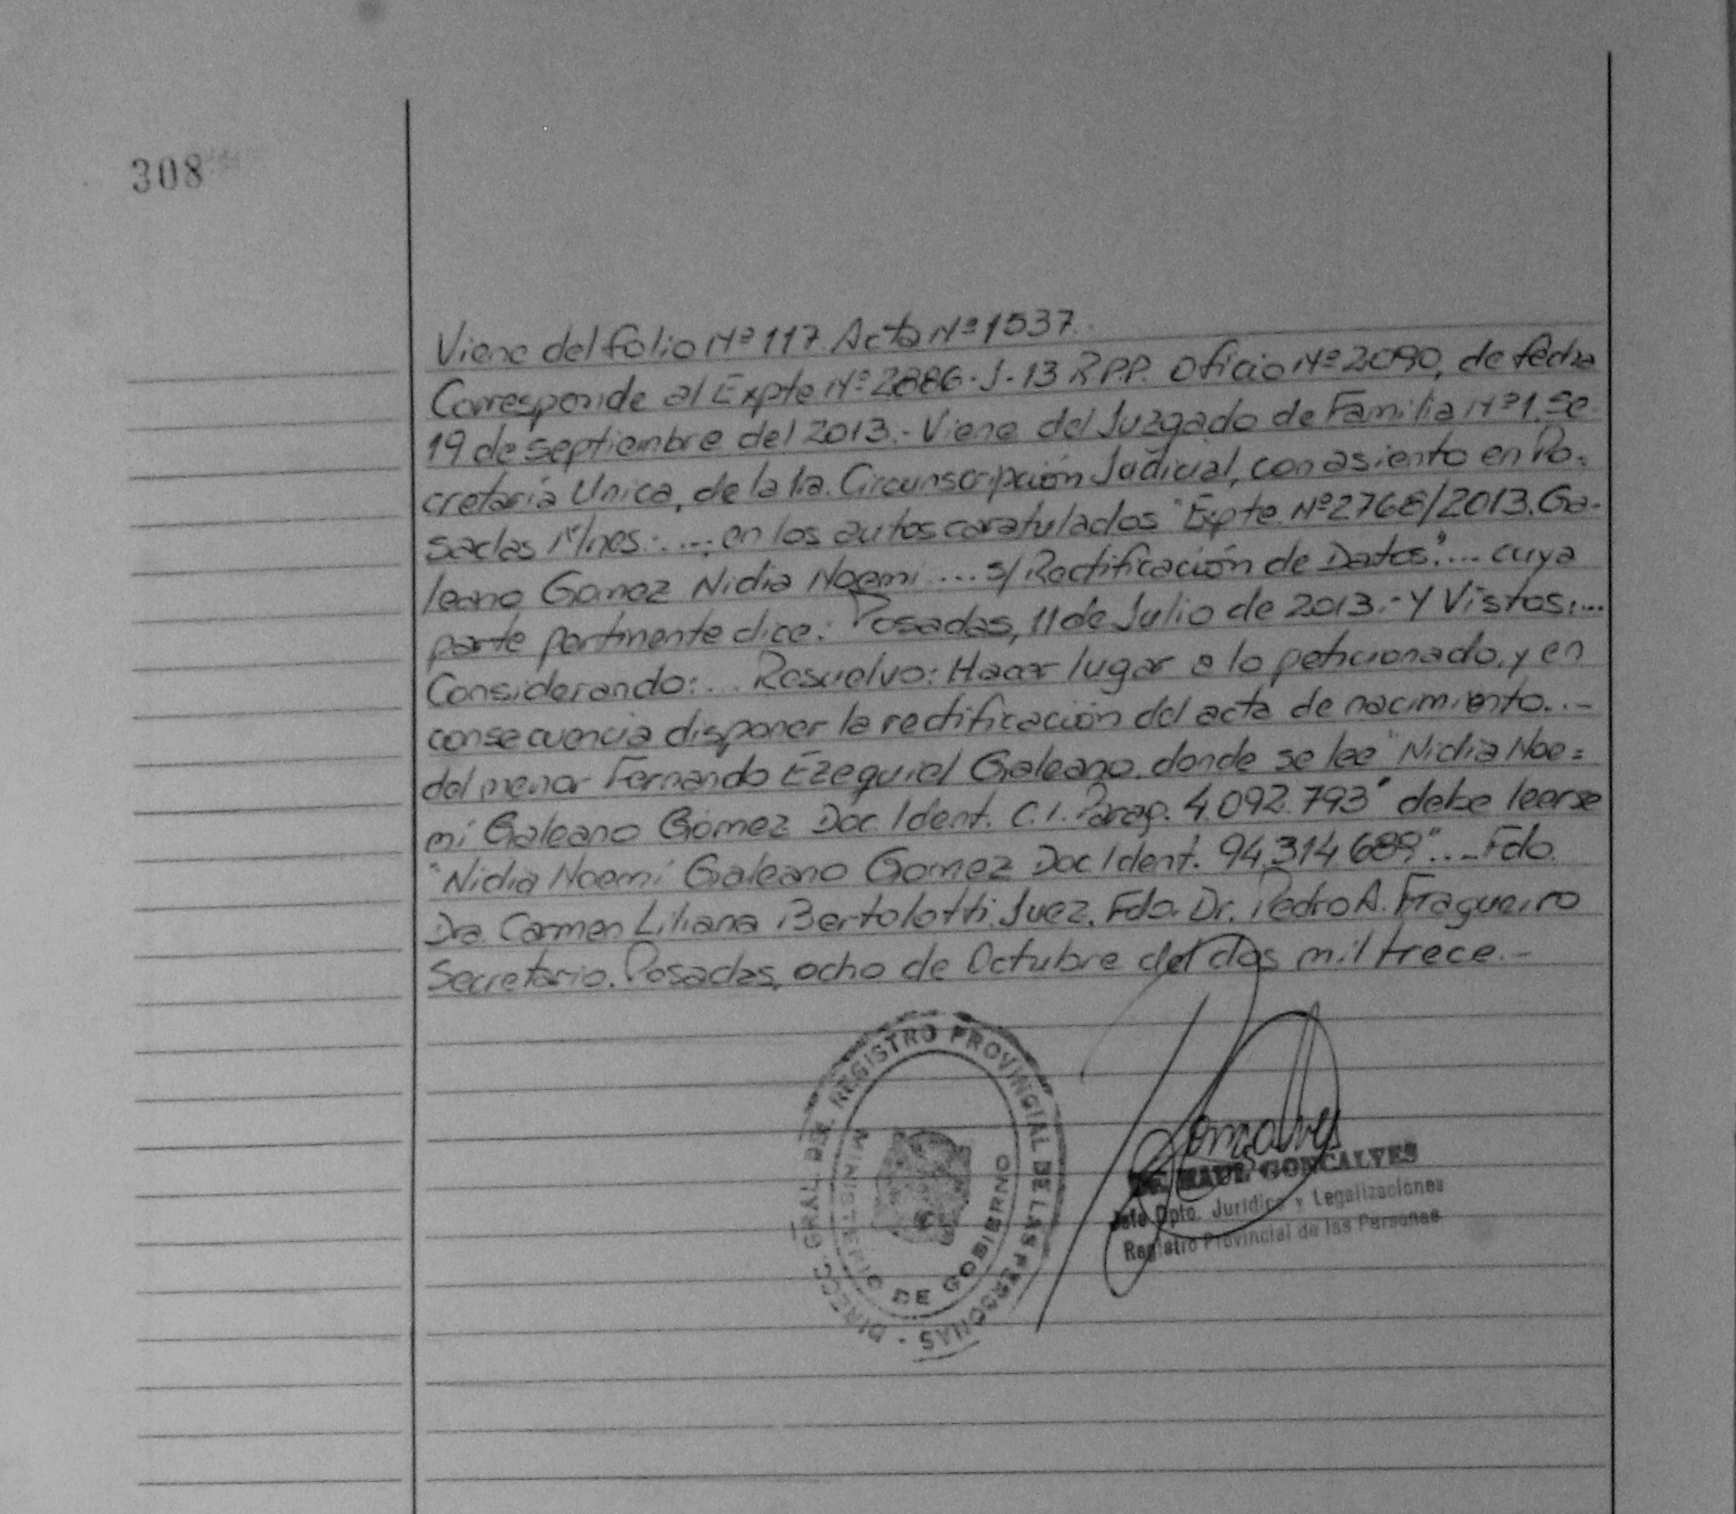 308
Viene del folio Nº 117 Acta Nº 1537.
Corresponde al Expte Nº 2886-J-13 R.P.P. Oficio Nº 2090, de fecha
19 de septiembre del 2013.- Viene del Juzgado de Familia Nº 1, Se-
cretaría Unica, de la 1a. Circunscripción Judicial, con asiento en Po-
sadas Mnes. ....; en los autos caratulados "Expte. Nº 2768/2013. Ga-
leano Gomez Nidia Noemi .... s/ Rectificación de Datos".... cuya
parte pertinente dice: Posadas, 11 de Julio de 2013.- Y Vistos:...
Considerando:... Resuelvo: Hacer lugar a lo peticionado, y en
consecuencia disponer la rectificación del acta de nacimiento...-
del menor Fernando Ezequiel Galeano, donde se lee "Nidia Noe=
mí Galeano Gómez Doc. Ident. C.I. Parag. 4.092.793" debe leerse
"Nidia Noemí Galeano Gomez Doc Ident. 94.314.689" ...- Fdo.
Dra. Carmen Liliana Bertolotti. Juez. Fdo. Dr. Pedro A. Fragueiro
Secretario. Posadas, ocho de Octubre del dos mil trece.-
DIRECC. GRAL DEL REGISTRO PROVINCIAL DE LAS PERSONAS
MINISTERIO DE GOBIERNO
Gonçalves
Dr. RAUL GONCALVES
Jefe Dpto. Jurídico y Legalizaciones
Registro Provincial de las Personas